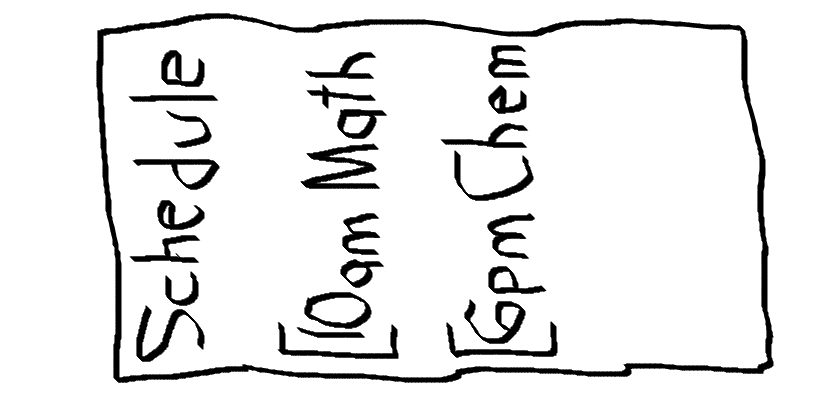 Schedule
[10am Math
[6pm Chem